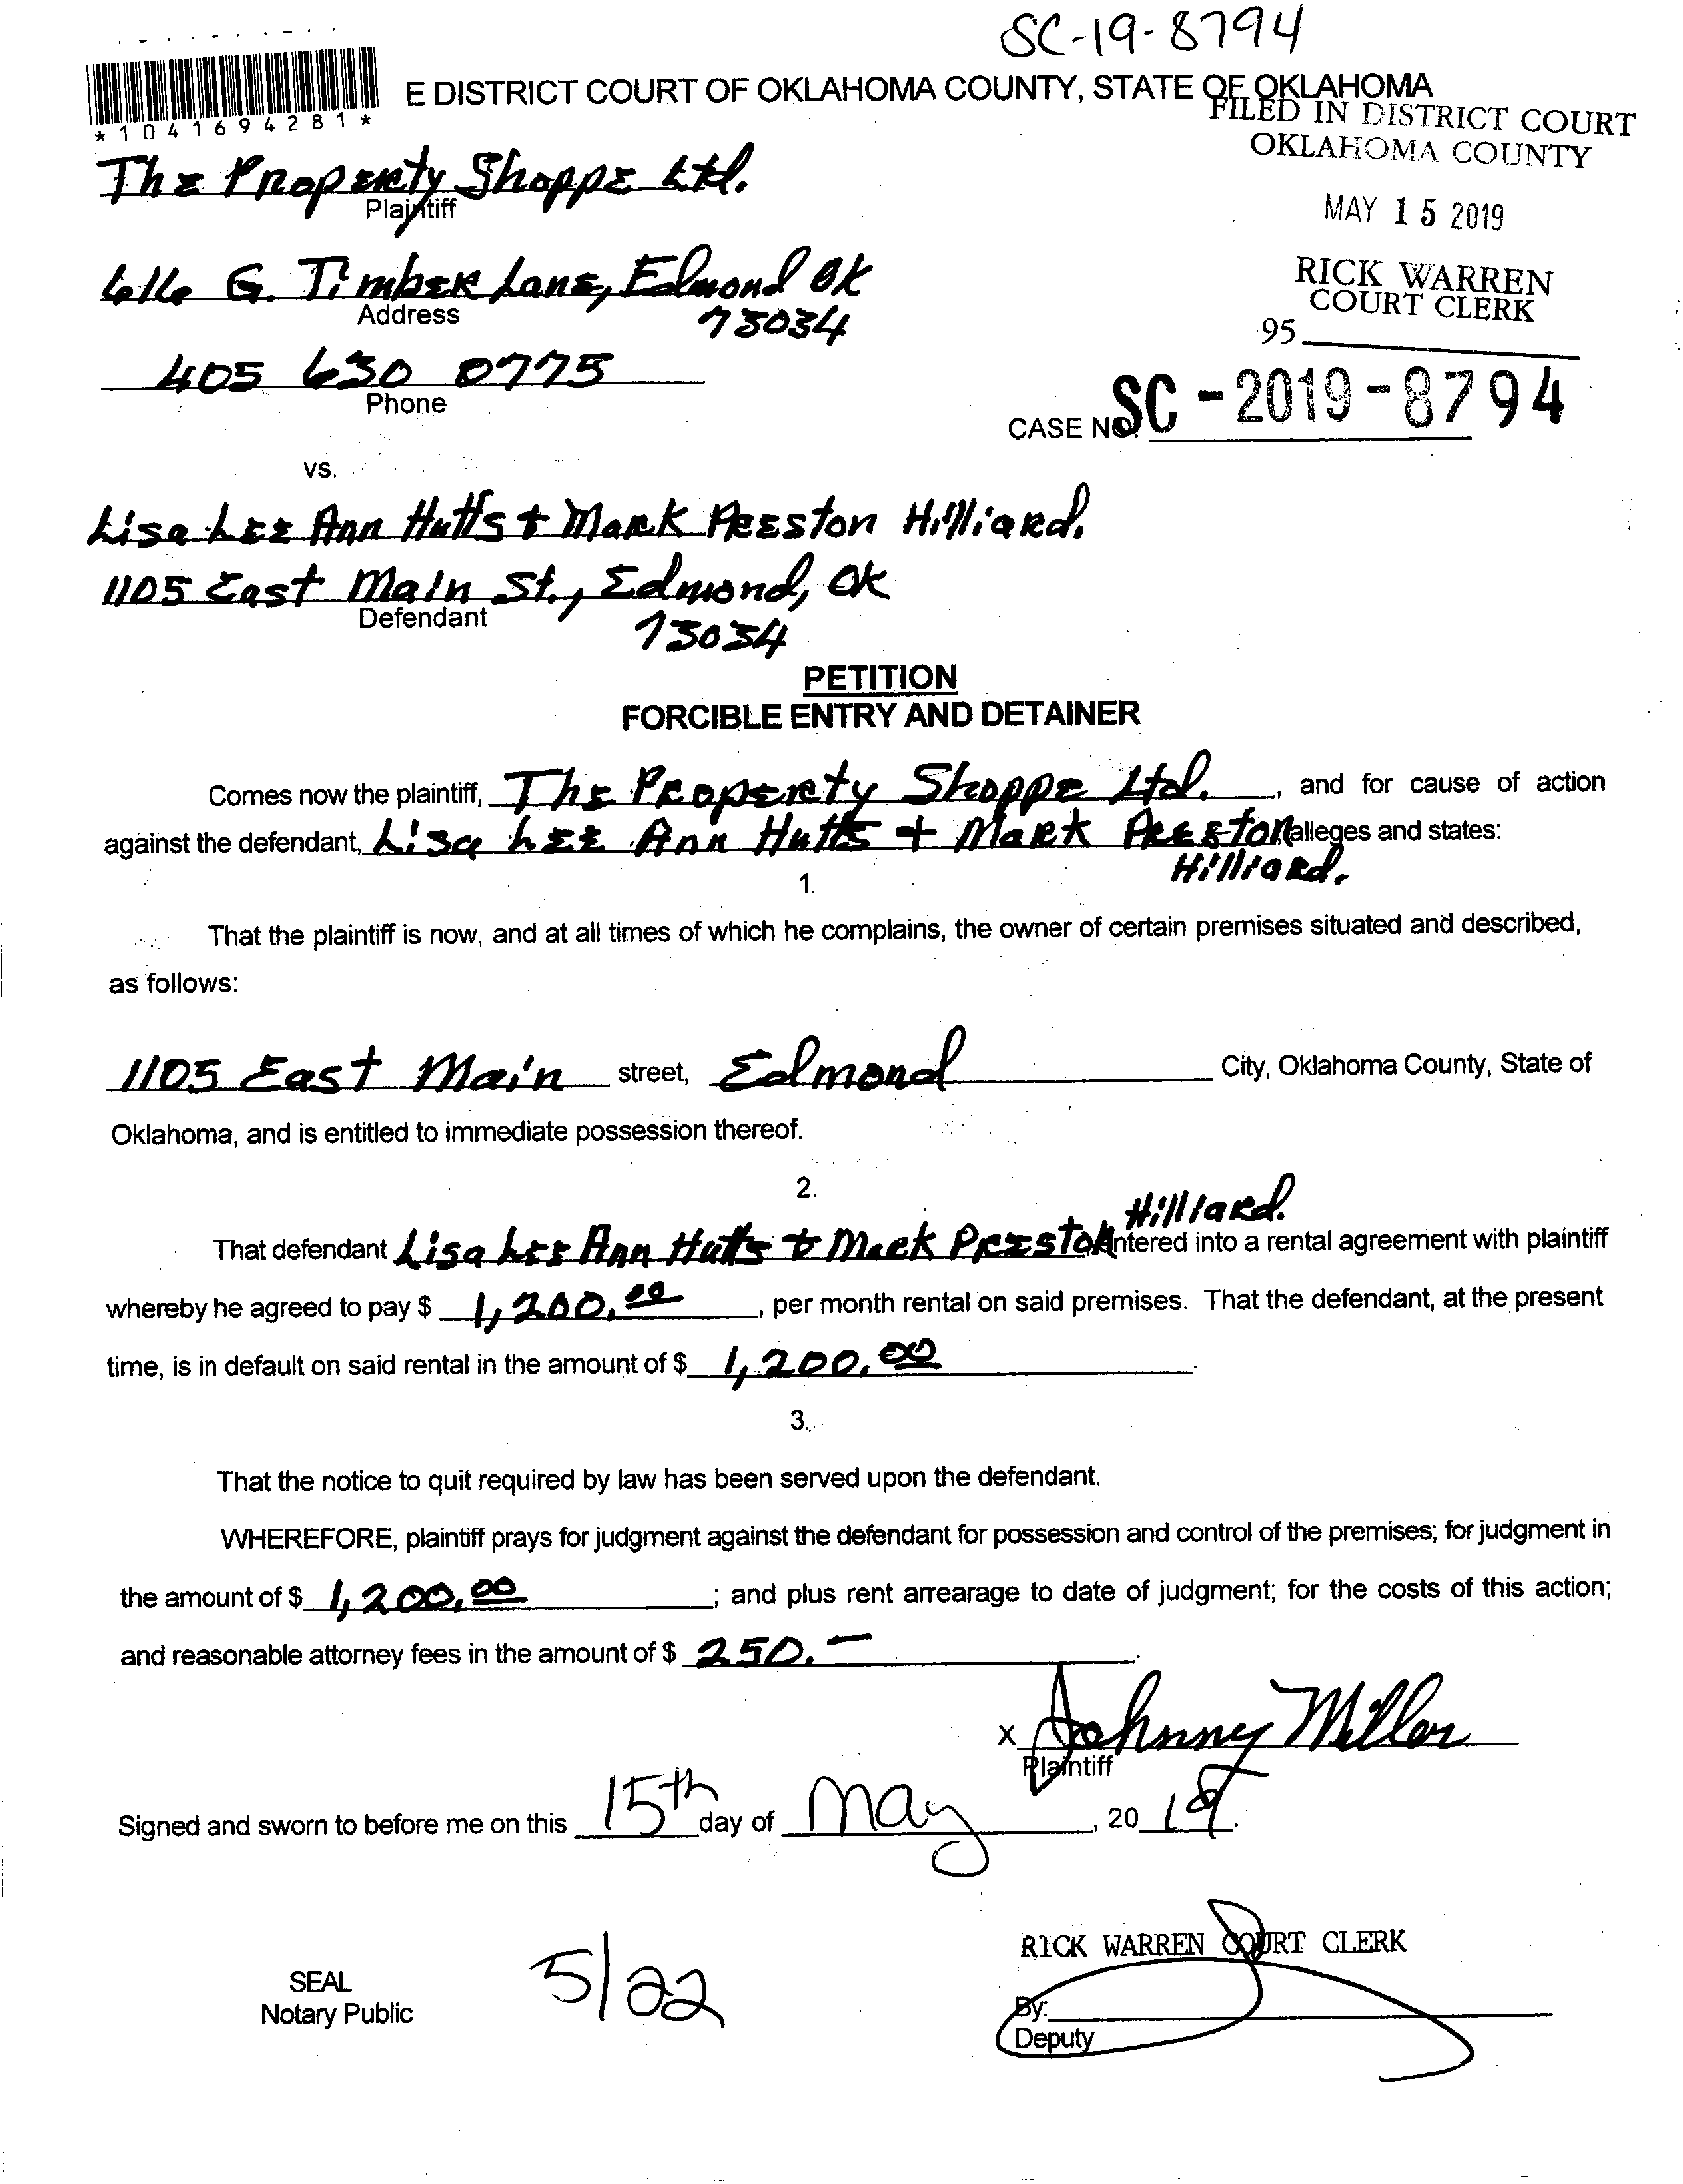 SC-19-8794
E DISTRICT COURT OF OKLAHOMA COUNTY, STATE OF OKLAHOMA
*1041694281*
FILED IN DISTRICT COURT
OKLAHOMA COUNTY
The Property Shoppe Ltd.
Plaintiff
MAY 15 2019
616 G. Timber Lane, Edmond OK
Address
73034
RICK WARREN
COURT CLERK
95
405 630 0775
Phone
CASE NO. SC-2019-8794
vs.
Lisa Lee Ann Hutts + Mark Preston Hilliard.
1105 East Main St., Edmond, OK
Defendant
73034
PETITION
FORCIBLE ENTRY AND DETAINER
Comes now the plaintiff, The Property Shoppe Ltd., and for cause of action
against the defendant, Lisa Lee Ann Hutts + Mark Preston alleges and states:
Hilliard.
1.
That the plaintiff is now, and at all times of which he complains, the owner of certain premises situated and described,
as follows:
1105 East Main street, Edmond City, Oklahoma County, State of
Oklahoma, and is entitled to immediate possession thereof.
2.
Hilliard.
That defendant Lisa Lee Ann Hutts + Mark Preston entered into a rental agreement with plaintiff
whereby he agreed to pay $ 1,200.00, per month rental on said premises. That the defendant, at the present
time, is in default on said rental in the amount of $ 1,200.00.
3.
That the notice to quit required by law has been served upon the defendant.
WHEREFORE, plaintiff prays for judgment against the defendant for possession and control of the premises; for judgment in
the amount of $ 1,200.00; and plus rent arrearage to date of judgment; for the costs of this action;
and reasonable attorney fees in the amount of $ 250.—.
x Johnny Miller
Plaintiff
Signed and sworn to before me on this 15th day of May, 2019.
RICK WARREN COURT CLERK
SEAL
Notary Public
5/22
By:
Deputy